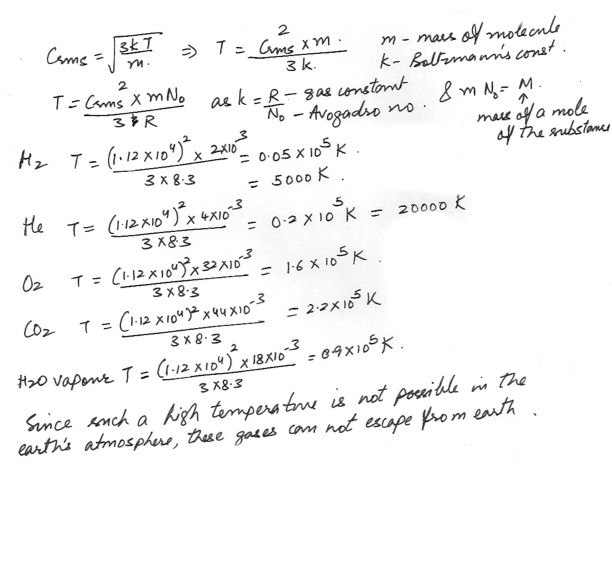 Crms = √(3kT/m.) ⇒ T = Crms² × m. / 3k. m - mass of molecule
k - Boltzmann's const.
T = Crms² × mN₀ / 3 R as k = R/N₀ - gas constant - Avogadro no. & m N₀ = M.
mass of a mole
of the substance
H₂ T = (1.12 × 10⁴)² × 2×10⁻³ / 3 × 8.3 = 0.05 × 10⁵ K.
= 5000 K.
He T = (1.12 × 10⁴)² × 4×10⁻³ / 3 × 8.3 = 0.2 × 10⁵ K = 20000 K
O₂ T = (1.12 × 10⁴)² × 32×10⁻³ / 3 × 8.3 = 1.6 × 10⁵ K.
CO₂ T = (1.12 × 10⁴)² × 44×10⁻³ / 3 × 8.3 = 2.2 × 10⁵ K
H₂O vapour T = (1.12 × 10⁴)² × 18×10⁻³ / 3 × 8.3 = 0.9 × 10⁵ K.
Since such a high temperature is not possible in the
earth's atmosphere, these gases can not escape from earth.